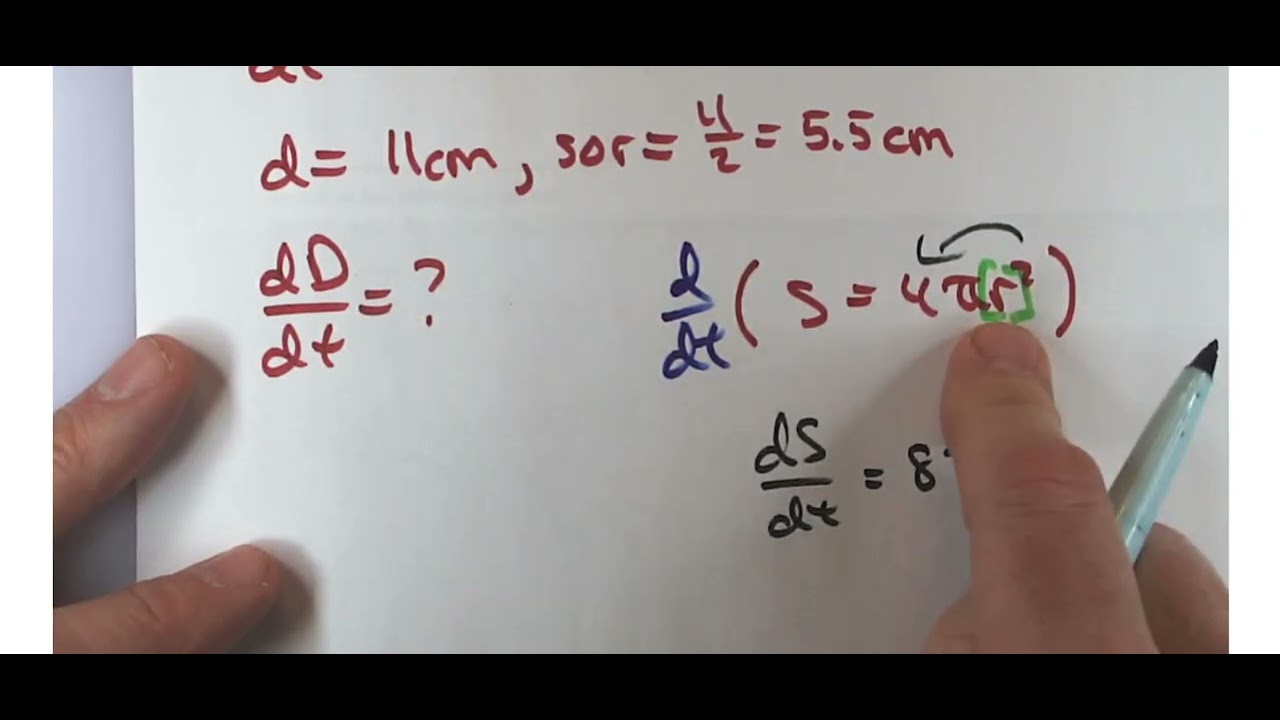 d = 11cm, so r = 11/2 = 5.5cm
dD/dt = ?
d/dt ( S = 4πr² )
dS/dt = 8